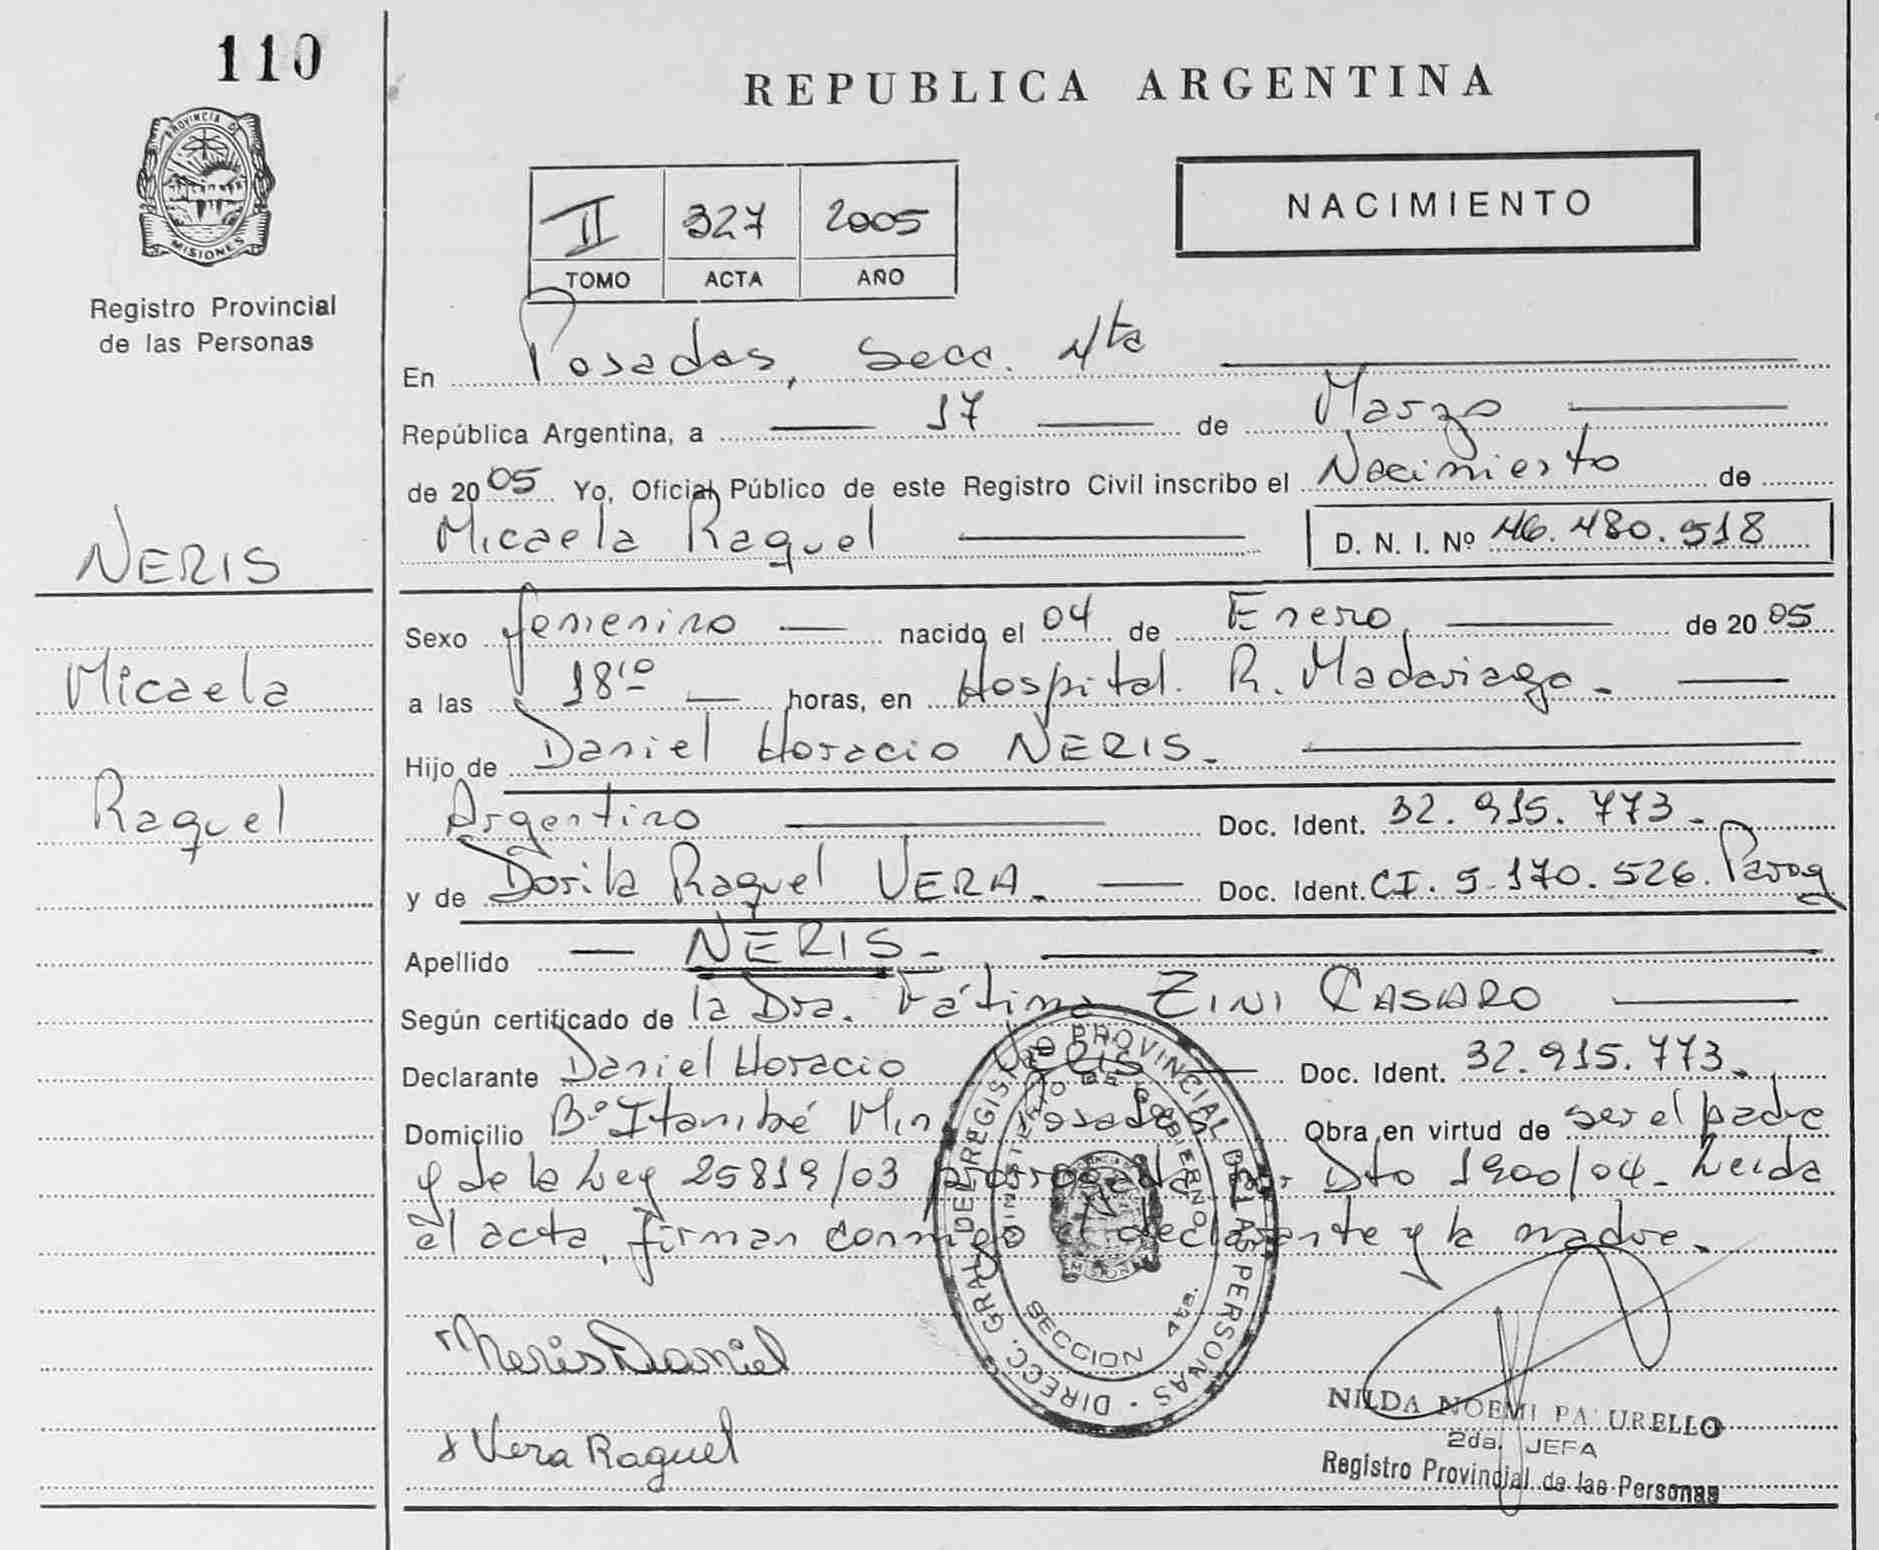 110
PROVINCIA DE
MISIONES
Registro Provincial
de las Personas
NERIS
Micaela
Raquel
REPUBLICA ARGENTINA
II 327 2005
TOMO ACTA AÑO
NACIMIENTO
En Posadas, Secc. 4ta
República Argentina, a 17 de Marzo
de 2005 Yo, Oficial Público de este Registro Civil inscribo el Nacimiento de
Micaela Raquel D. N. I. Nº 46.480.518
Sexo femenino nacido el 04 de Enero de 2005
a las 18:10 horas, en Hospital. R. Madariaga.
Hijo de Daniel Horacio NERIS.
Argentino Doc. Ident. 32.915.773.
y de Dorila Raquel VERA. Doc. Ident. CI. 5.170.526. Parag
Apellido NERIS.
Según certificado de la Dra. Fátima ZINI CASARO
Declarante Daniel Horacio Neris Doc. Ident. 32.915.773.
Domicilio Bº Itambé Miní Posadas Obra en virtud de ser el padre
y de la Ley 25819/03 prorrogada por Dto 1900/04. Leida
el acta, firman conmigo el declarante y la madre.
DIRECC. GRAL. DEL REGISTRO PROVINCIAL DE LAS PERSONAS
MINISTERIO DE GOBIERNO
SECCION 4ta.
Neris Daniel
Vera Raquel
NILDA NOEMI
2da. JEFA
Registro Provincial de las Personas